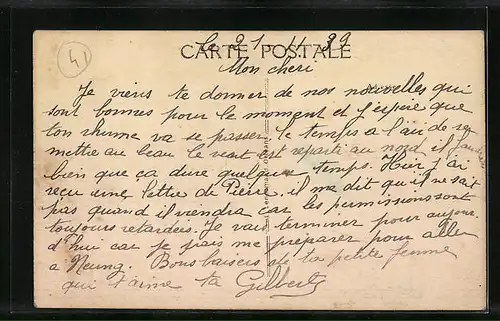 41
Le 21 - 11 39
CARTE POSTALE
Mon cheri
Je viens te donner de nos nouvelles qui
sont bonnes pour le moment et j'espère que
ton rhume va se passer, le temps a l'air de se
mettre au beau le vent est reparti au nord il faudrait
bien que ça dure quelque temps. Hier j'ai
reçu une lettre de Pierre, il m'a dit qu'il ne sait
pas quand il viendra car les permissions sont
toujours retardées. Je vais terminer pour aujour-
d'hui car je vais me préparer pour aller
a Neung. Bons baisers de ta petite femme
qui t'aime ta Gilberte